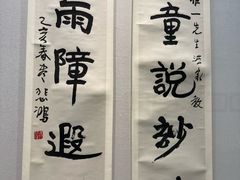 一先生
童說妙
雨障遐
乙亥春悲鴻